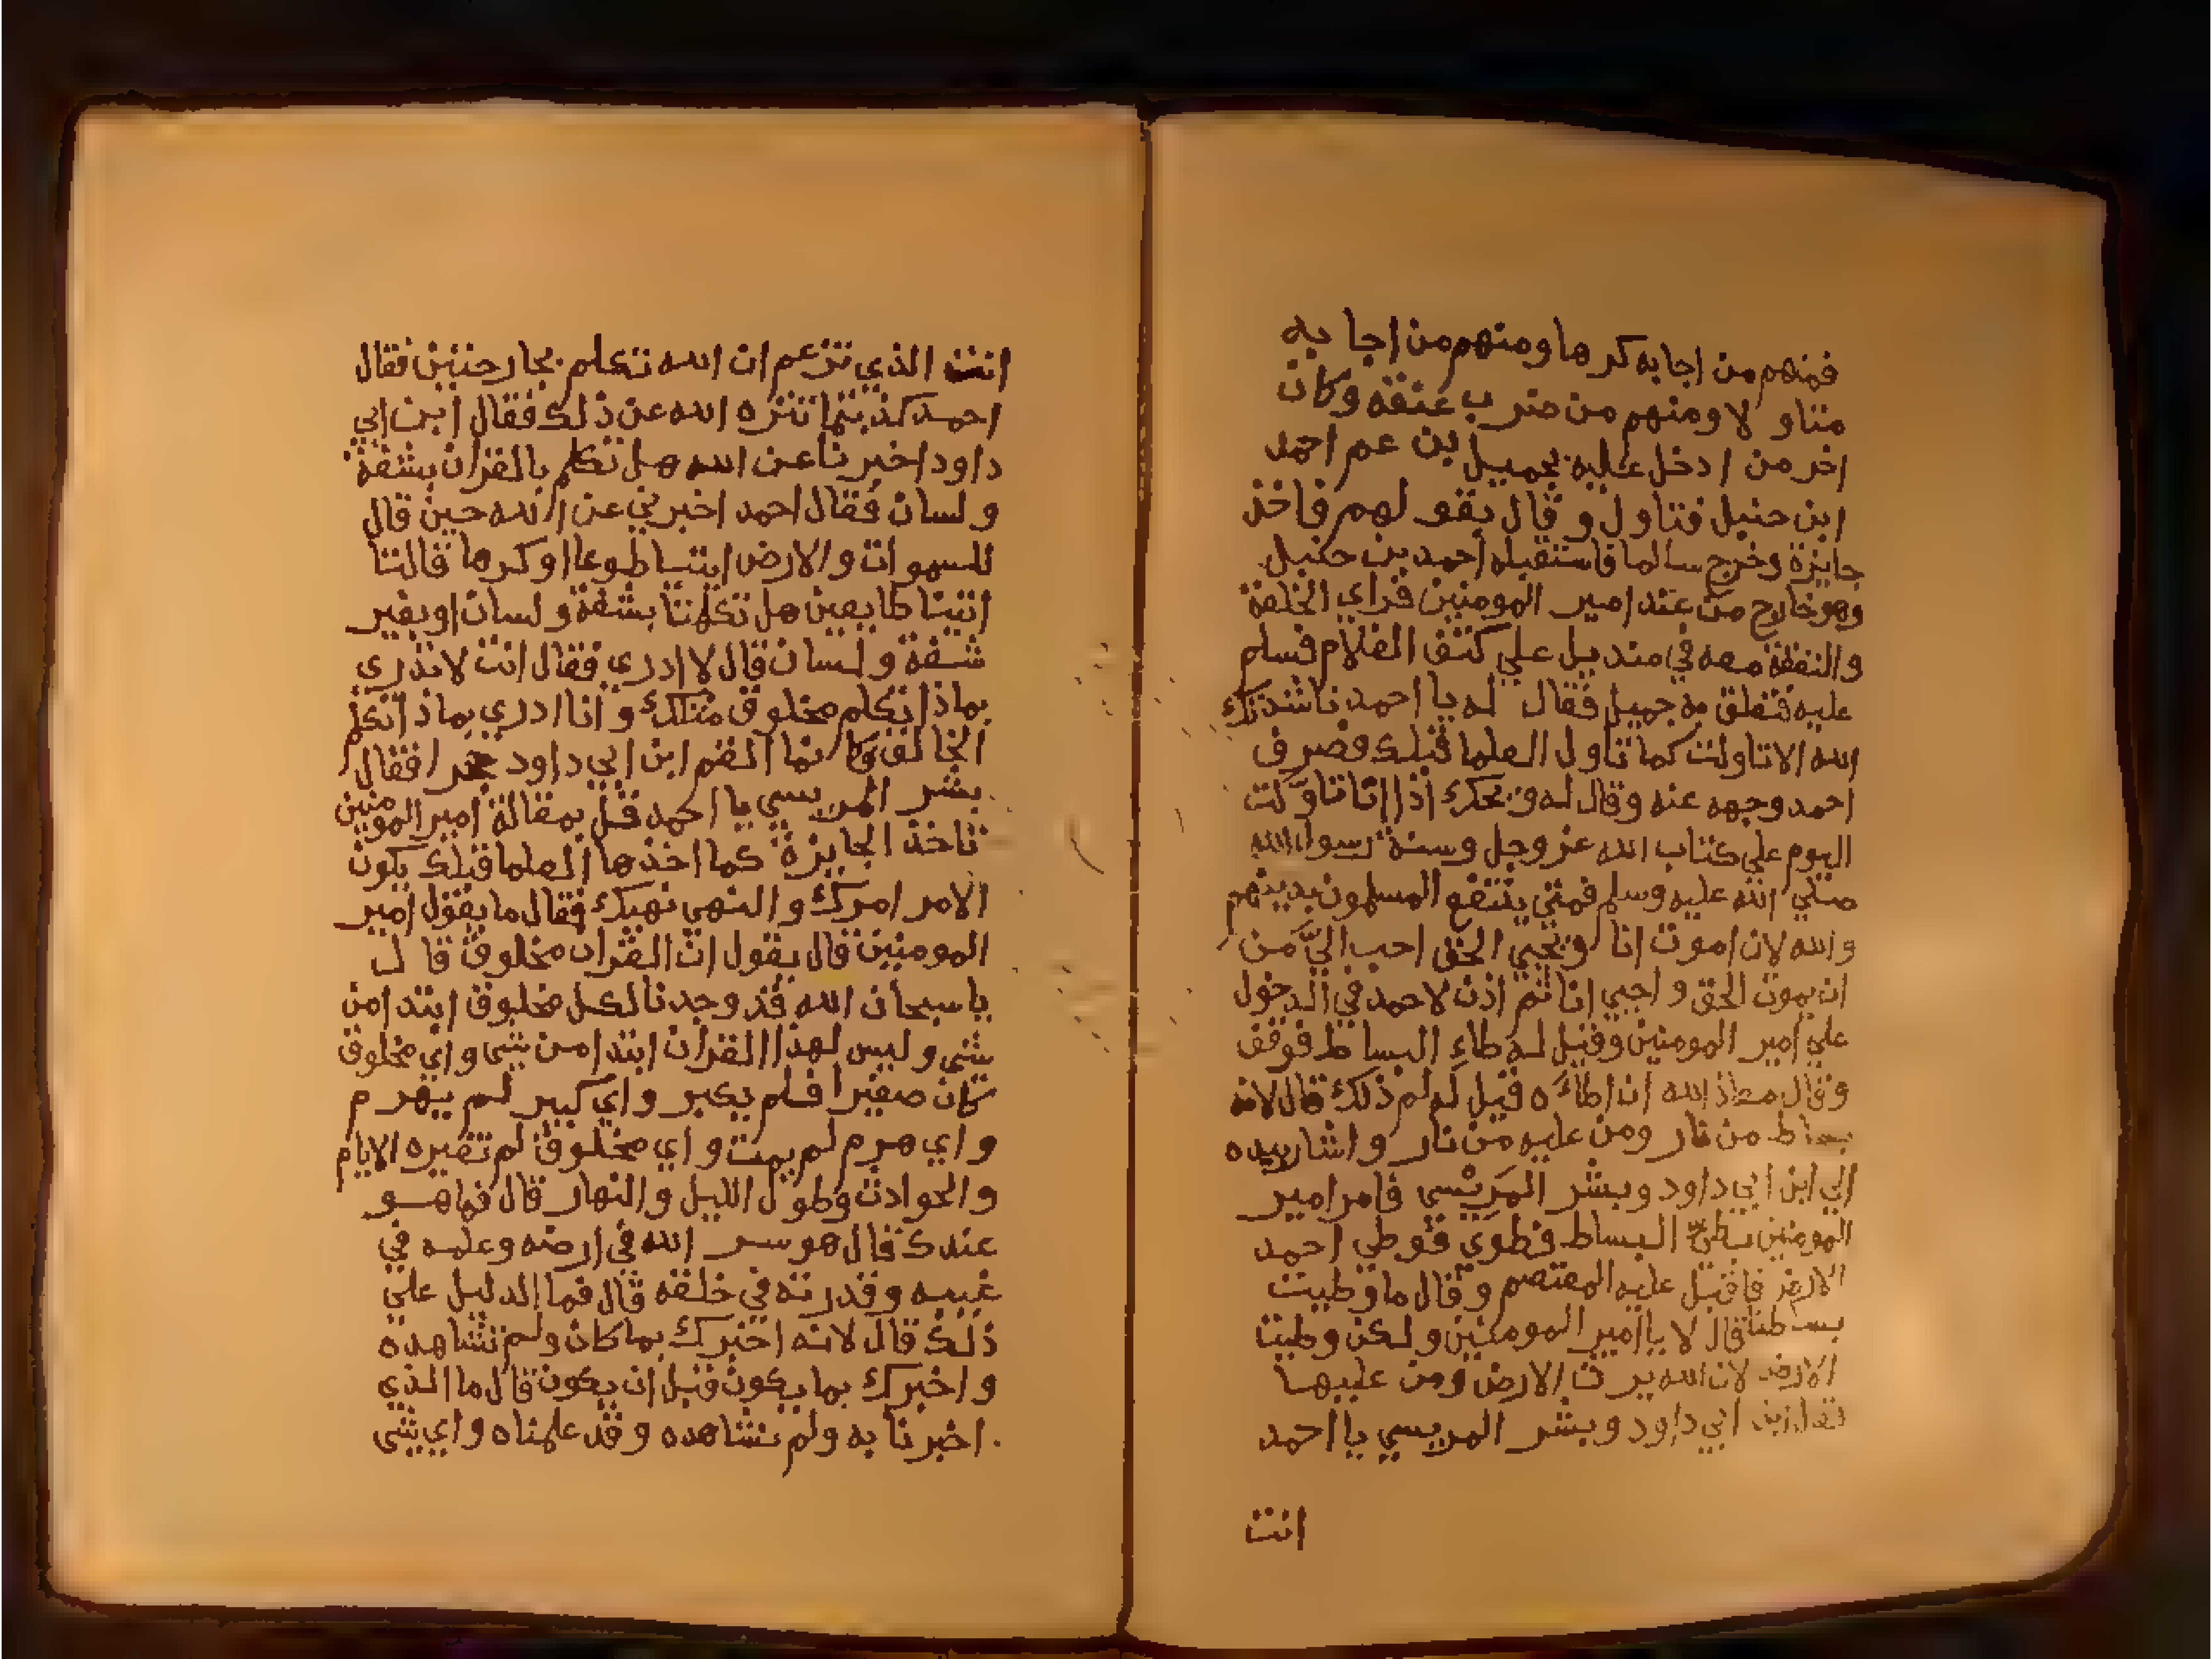 فمنهم من اجابه كرها ومنهم من اجابه
متاولا ومنهم من ضرب عنقه وكان
اخر من ادخل عليه جميل بن عم احمد
ابن حنبل فتاول وقال بقولهم فاخذ
جايزة وخرج سالما فاستقبله احمد بن حنبل
وهو خارج من عند امير المومنين فراي الخلعة
والنفقة معه في منديل علي كتف الغلام فسلم
عليه فتعلق به جميل فقال له يا احمد ناشدتك
الله الا تاولت كما تاول العلما قبلك فصرف
احمد وجهه عنه وقال له ويحك اذا انا تاولت
اليوم علي كتاب الله عز وجل وسنة رسول الله
صلي الله عليه وسلم فمتي ينتفع المسلمون بدينهم
والله لان اموت انا ويحيي الحق احب الي من
ان يموت الحق و احيي انا ثم اذن لاحمد في الدخول
علي امير المومنين وقيل له طاء البساط فوقف
وقال معاذ الله ان اطاه قيل له لم ذلك قال لانه
بساط من نار ومن عليه من نار واشار بيده
الي ابن ابي داود وبشر المريسي فامر امير
المومنين بطي البساط فطوي فوطي احمد
الارض فاقبل عليه المعتصم وقال ما وطيت
بساطنا قال لا يا امير المومنين ولكن وطيت
الارض لان الله يرث الارض ومن عليها
فقال ابن ابي داود وبشر المريسي يا احمد
انت
انت الذي تزعم ان الله تكلم بجارحتين فقال
احمد كذبتما تنزه الله عن ذلك فقال ابن ابي
داود اخبرنا عن الله هل تكلم بالقران بشفة
ولسان فقال احمد اخبرني عن الله حين قال
للسموات والارض ايتيا طوعا او كرها قالتا
اتينا طايعين هل تكلمتا بشفة ولسان او بغير
شفة ولسان قال لا ادري فقال انت لا تدري
بماذا تكلم مخلوق مثلك وانا ادري بماذا تكلم
الخالق فكانما القم ابن ابي داود حجرا فقال
بشر المريسي يا احمد قل بمقالة امير المومنين
تاخذ الجايزة كما اخذها العلما قبلك يكون
الامر امرك والنهي نهيك فقال ما يقول امير
المومنين قال يقول ان القران مخلوق قال
يا سبحان الله قد وجدنا لكل مخلوق ابتدا من
شي وليس لهذا القران ابتدا من شي واي مخلوق
كان صغيرا فلم يكبر واي كبير لم يهرم
واي هرم لم يمت واي مخلوق لم تغيره الايام
والحوادث وطول الليل والنهار قال فما هو
عندك قال هو سر الله في ارضه وعلمه في
غيبه وقدرته في خلقه قال فما الدليل علي
ذلك قال لانه اخبرك بما كان ولم تشاهده
واخبرك بما يكون قبل ان يكون قال ما الذي
اخبرنا به ولم نشاهده وقد علمناه واي شي